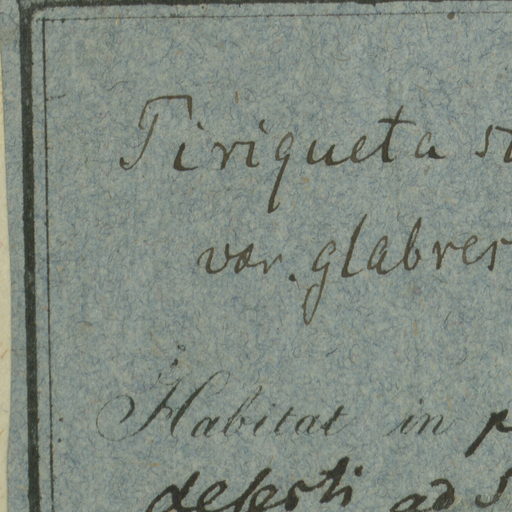 Tiriqueta
var. glabres
Habitat in p
deserti ad S